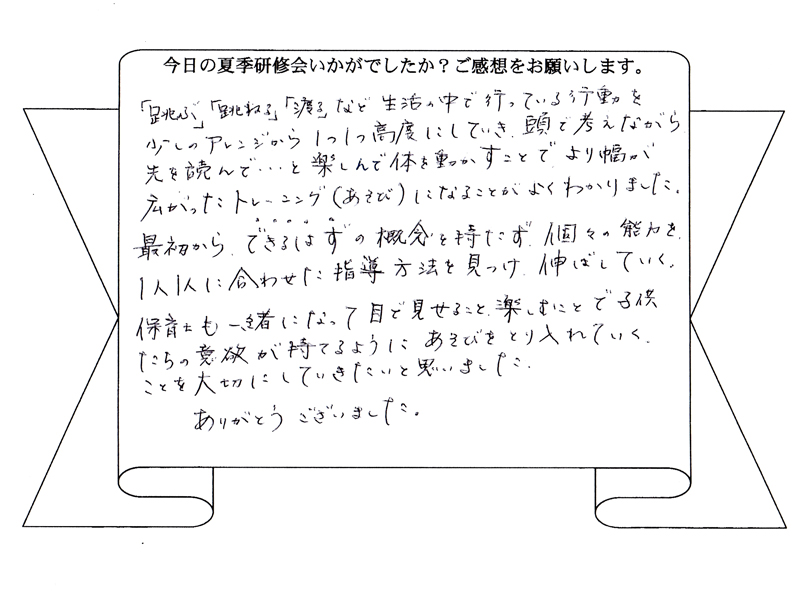 今日の夏季研修会いかがでしたか？ご感想をお願いします。
「跳ぶ」「跳ねる」「渡る」など 生活の中で行っている行動を
少しのアレンジから 1つ1つ高度にしていき、頭で考えながら
先を読んで…と楽しんで体を動かすことで、より幅が
広がったトレーニング(あそび)になることがよくわかりました。
最初から、できるはずの概念を持たず、個々の能力を、
1人1人に合わせた指導方法を見つけ、伸ばしていく、
保育士も一緒になって目で見せること、楽しむことで子供
たちの意欲が持てるようにあそびをとり入れていく、
ことを大切にしていきたいと思いました。
ありがとうございました。